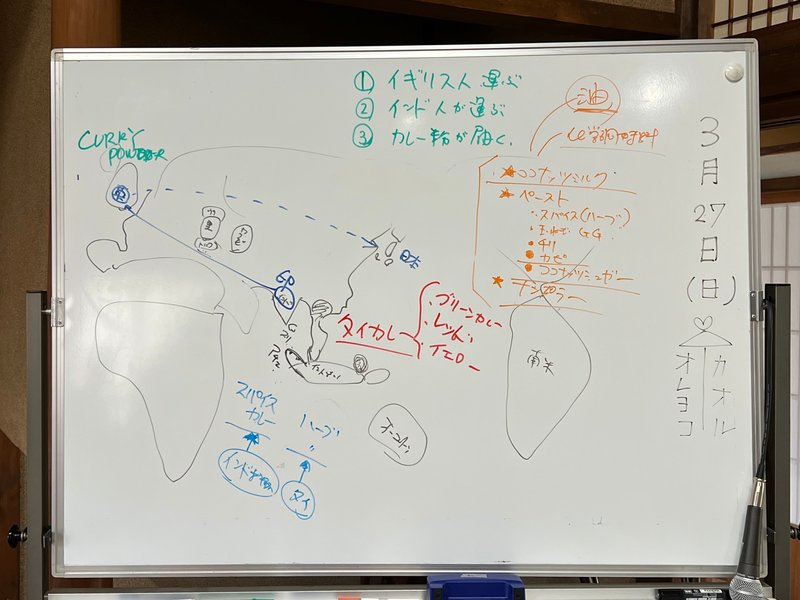 ① イギリス人 運ぶ
② インド人が運ぶ
③ カレー粉が届く.
CURRY
POWDER
英
日本
GP
スパイス
カレー
インド
ハーブ
〃
タイ
オーストラリア
タイカレー
・グリーンカレー
・レッド〃
・イエロー
油
★ココナッツミルク
★ペースト
・スパイス(ハーブ)
・玉ねぎ GG
●チリ
●カピ
●ココナッツシュガー
★ナンプラー
南米
3
月
27
日
(日)
カオル
オレヨコ